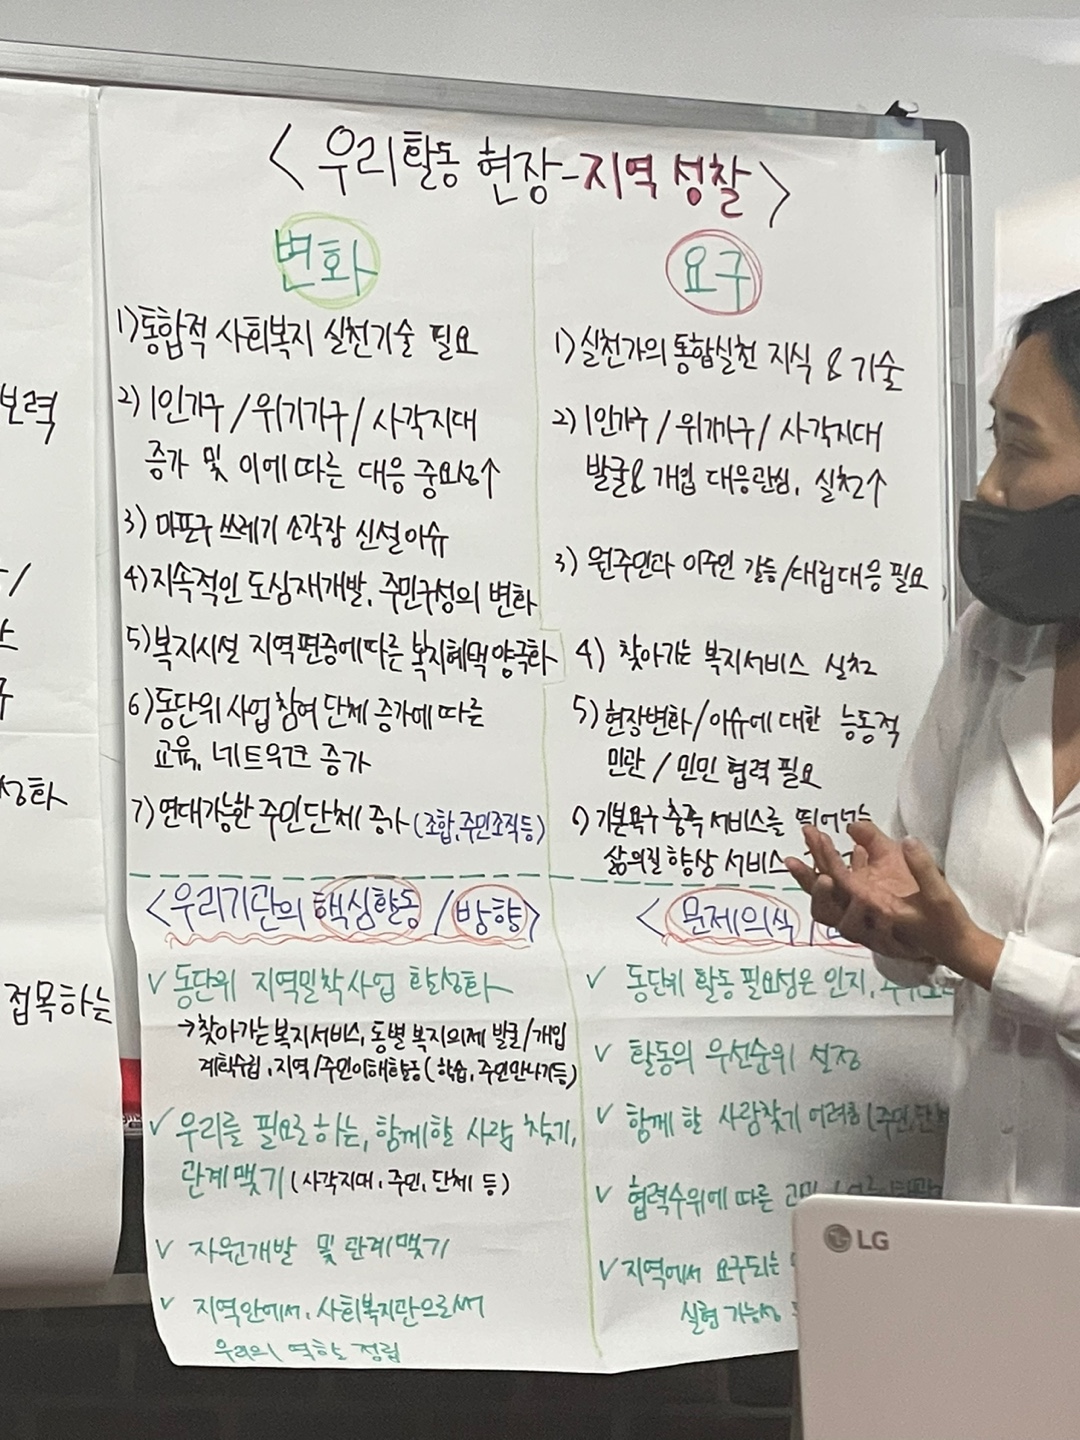 <우리활동 현장-지역 성찰>
변화
1)통합적 사회복지 실천기술 필요
2) 1인가구/위기가구/사각지대
증가 및 이에 따른 대응 중요성↑
3) 마포구 쓰레기 소각장 신설이슈
4)지속적인 도심재개발, 주민구성의 변화
5)복지시설 지역편중에따른 복지혜택양극화
6)동단위 사업 참여 단체 증가에 따른
교육, 네트워크 증가
7)연대가능한 주민단체 증가(조합,주민조직등)
요구
1)실천가의 통합실천 지식 & 기술
2)1인가구/위기가구/사각지대
발굴&개입 대응관심, 실천↑
3) 원주민과 이주민 갈등/대립대응 필요
4) 찾아가는 복지서비스 실천
5)현장변화/이슈에 대한 능동적
민관/민민 협력 필요
6)기본욕구 충족 서비스를 뛰어넘는
삶의질 향상 서비스
<우리기관의 핵심활동/방향>
✓동단위 지역밀착사업 활성화
→찾아가는복지서비스, 동별 복지의제 발굴/개입
계획수립, 지역/주민이해활동(학습, 주민만나기등)
✓우리를 필요로하는, 함께할 사람 찾기,
관계맺기(사각지대, 주민, 단체 등)
✓ 자원개발 및 관계맺기
✓ 지역안에서, 사회복지관으로써
우리의 역할 정립
<문제의식/
✓ 동단위 활동 필요성은 인지,
✓ 활동의 우선순위 설정
✓ 함께 할 사람찾기 어려움(주민,단체
✓ 협력수위에 따른 고민
✓지역에서 요구되는
실현 가능성
보력
성화
접목하는
LG